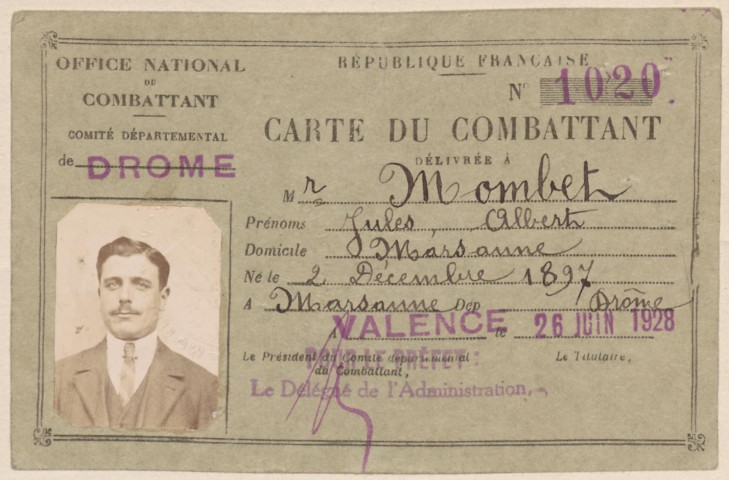 OFFICE NATIONAL
DU
COMBATTANT
COMITÉ DÉPARTEMENTAL
de DROME
RÉPUBLIQUE FRANÇAISE
N° 1020
CARTE DU COMBATTANT
DÉLIVRÉE À
Mr Mombet
Prénoms Jules, Albert
Domicile Marsanne
Né le 2 Décembre 1897
A Marsanne Dep Drôme
VALENCE le 26 JUIN 1928
Le Président du Comité départemental
du Combattant,
PRÉFET :
Le Titulaire,
Le Délégué de l'Administration,